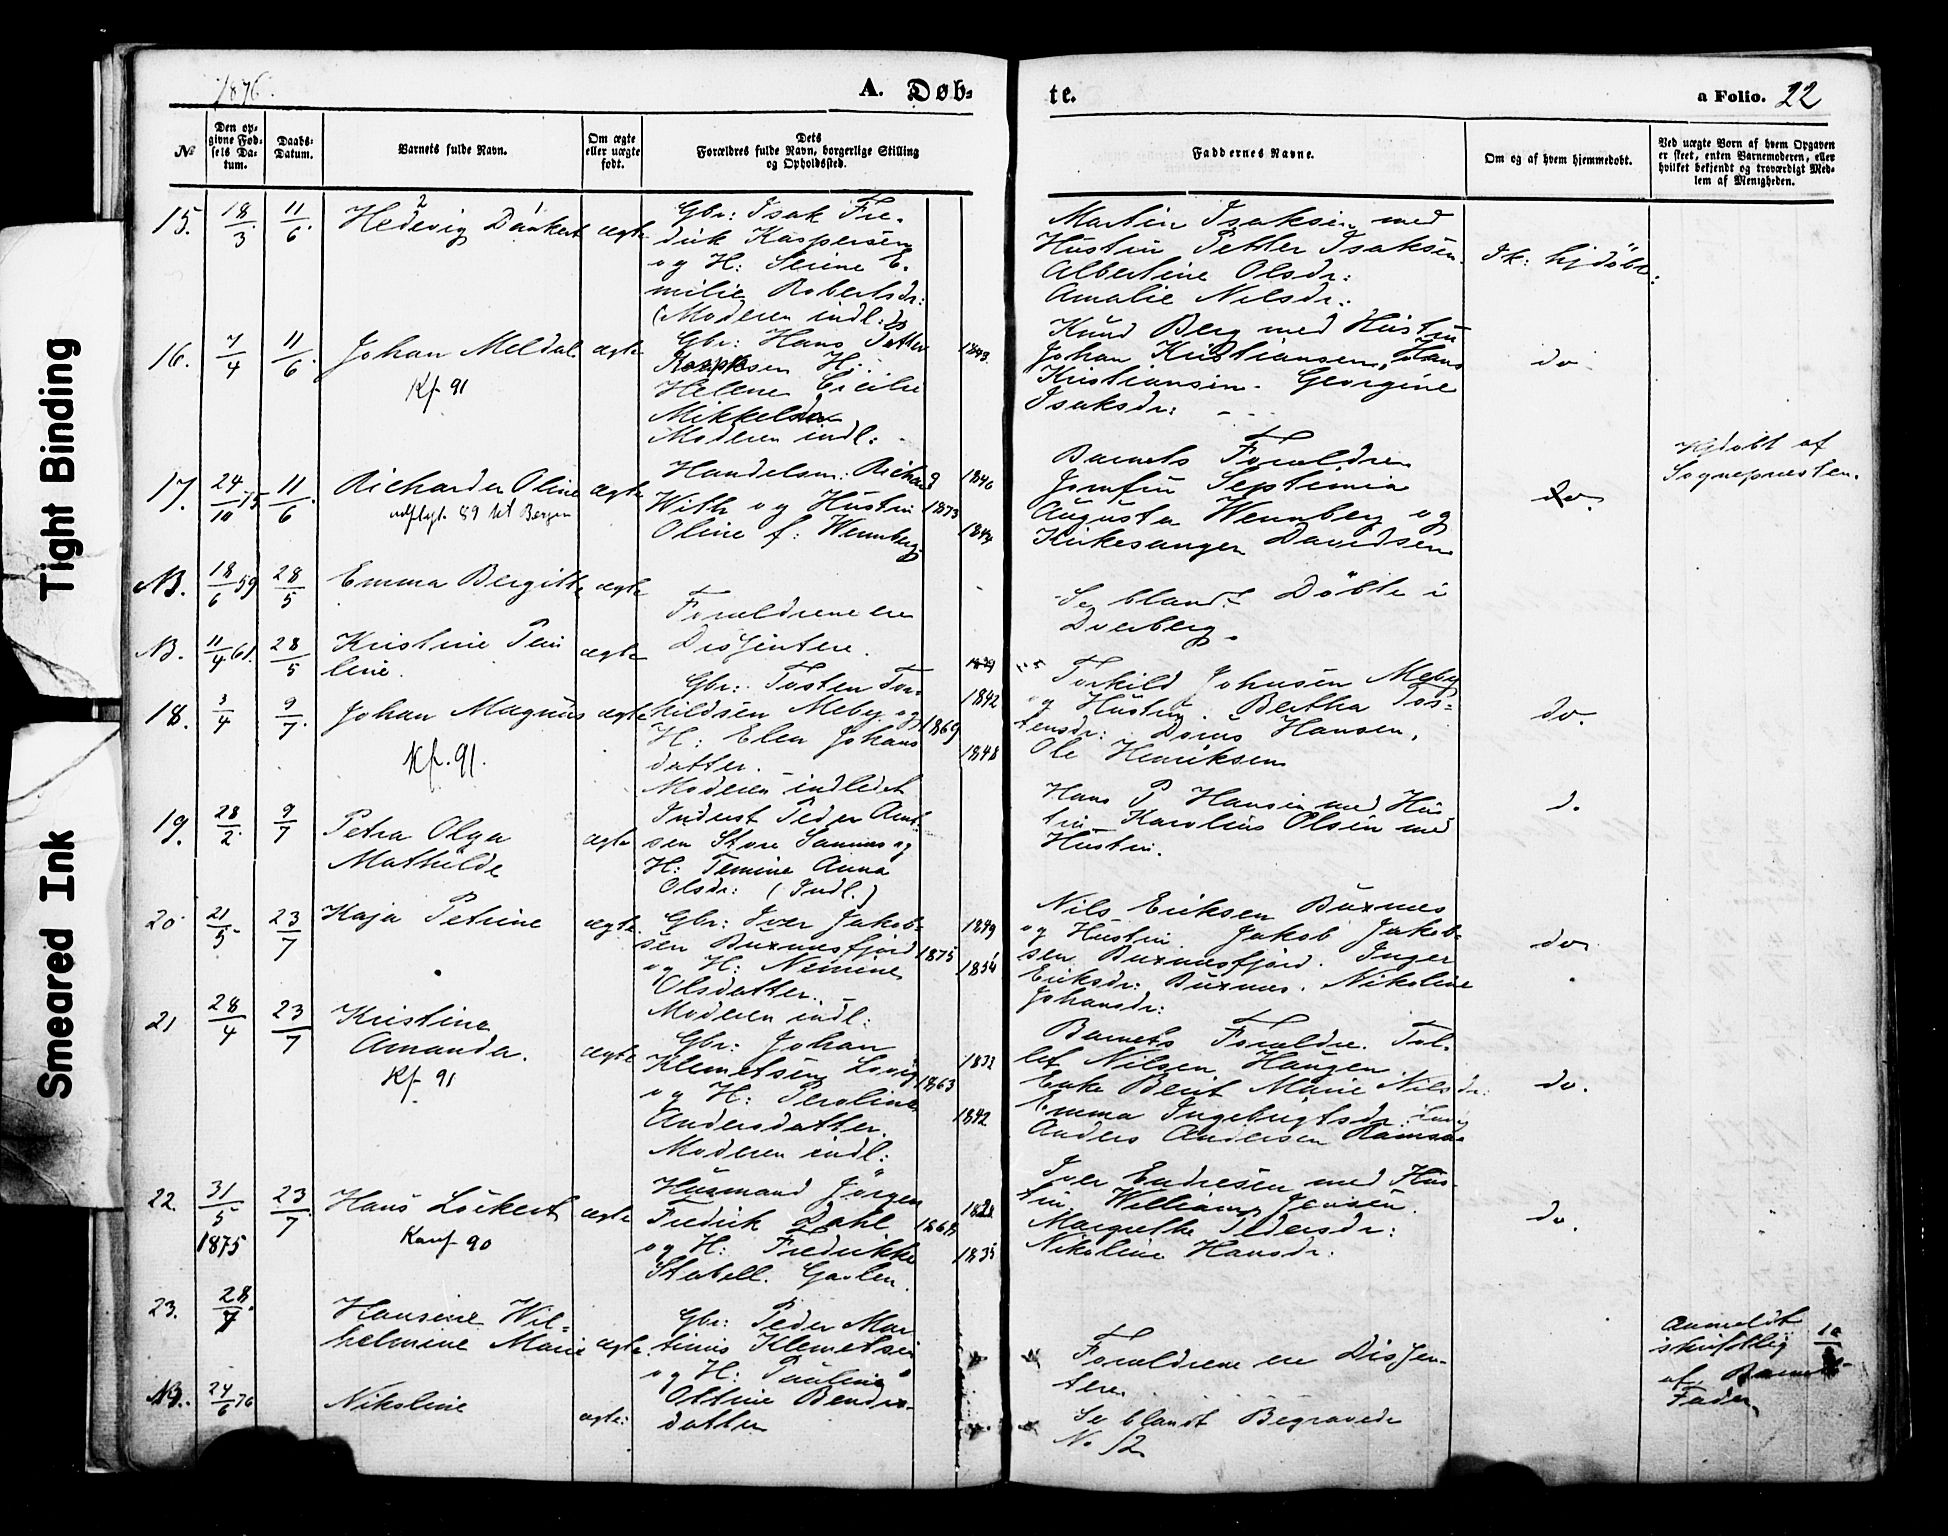 1876.
A. Døb-
te.
a Folio. 22
№
Den op-
givne Fød-
sels Da-
tum.
Daabs-
Datum.
Barnets fulde Navn.
Om ægte
eller uægte
født.
Dets
Forældres fulde Navn, borgerlige Stilling
og Opholdssted.
Faddernes Navne.
Om og af hvem hjemmedøbt.
Ved uægte Børn af hvem Opgaven
er skeet, enten Barnemoderen, eller
hvilket bekjendt og troværdigt Med-
lem af Menigheden.
Tight Binding
Smeared Ink
15. 18/3. 11/6. Hedevig Dánkert ægte
Gbr: Isak Fre-
drik Kaspersen
og H: Serine E-
milie Robertsdr:
(Moderen indl:
Martin Isaksen med
Hustru Petter Isaksen.
Albertine Olsdr:
Amalie Nilsdr:
Ik: hjdöbt:
16. 7/4 11/6. Johan Meldal ægte
Kf. 91
Gbr: Hans Petter
H:
Helene Cecilie
Mikkelsdr
Moderen indl:
1843.
Knud Berg med Hustru
Johan Kristiansen, Hans
Kristiansen. Georgine
Isaksdr:
do
17. 24/10 75 11/6. Richarda Oline ægte
udflyt. 89 til Bergen
Handelsm: Richard
With og Hustru
Oline f: Wennberg
1846
1873
1844
Barnets Forældre
Jomfru Septimia
Augusta Wennberg og
Kirkesanger Davidsen
do.
Hjdøbt af
Sognepresten.
NB. 18/6 59 28/5 Emma Bergitte ægte
NB. 11/4 61. 28/5 Kristine Pau
line. ægte
Forældrene ere
Dissentere.
Se blandt Döbte i
Dverberg.
18. 3/4 9/7. Johan Magnus ægte
Kf. 91.
Gbr: Tosten Tor-
kildsen Meby og
H: Elen Johans
datter.
Moderen indledet
1842
1869
1848
Torkild Johnsen Meby
og Hustru. Bertha Tos-
tensdr: Dorus Hansen,
Ole Henriksen
do.
19. 28/2. 9/7 Petra Olga
Mathilde ægte
Inderst Peder Arnt-
sen Store Sannes og
H: Temine Anna
Olsdr: (Indl.)
Hans P Hansen med Hus
tru Karolius Olsen med
Hustru.
d.
20 21/5 23/7 Kaja Petrine ægte
Gbr: Iver Jakob-
sen Buxnesfjord
og H: Nemine
Olsdatter.
Moderen indl:
1849
1875
1854
Nils Eriksen Buxnes
og Hustru. Jakob Jakob-
sen Buxnesfjord. Inger
Eriksdr: Buxnes. Nikoline
Johansdr:
do
21 28/4 23/7 Kristine
Amanda. ægte
Kf 91
Gbr: Johan
Klemetsen Lovig
og H: Peroline
Andersdatter.
Moderen indl:
1833
1863
1842
Barnets Forældre. Tol-
lef Nilsen Haugen
Enke Berit Marie Nilsdr:
Emma Ingebrigtsdr:
Anders Andersen Ramsaa
do.
22. 31/5 23/7. Hans Löckert ægte
1875
Konf. 90
Husmand Jörgen
Fredrik Dahl
og H: Fredrikke
Stabell. Gavlen
1828
1865
1835
Iver Endresen med Hus-
tru William Jensen.
Margrethe Pedersdr:
Nikoline Hansdr:
do.
23. 28/7 Hansine Wil-
helmine Marie ægte
Gbr: Peder Mar
tinus Klemetsen
og H: Pauline
Oltine Bendix-
datter
Forældrene ere Dissen-
tere
Anmeldt
skriftlig
af Barnets
Fader
NB. 24/6 76 Nikoline ægte:
Se blandt Begravede
No 12